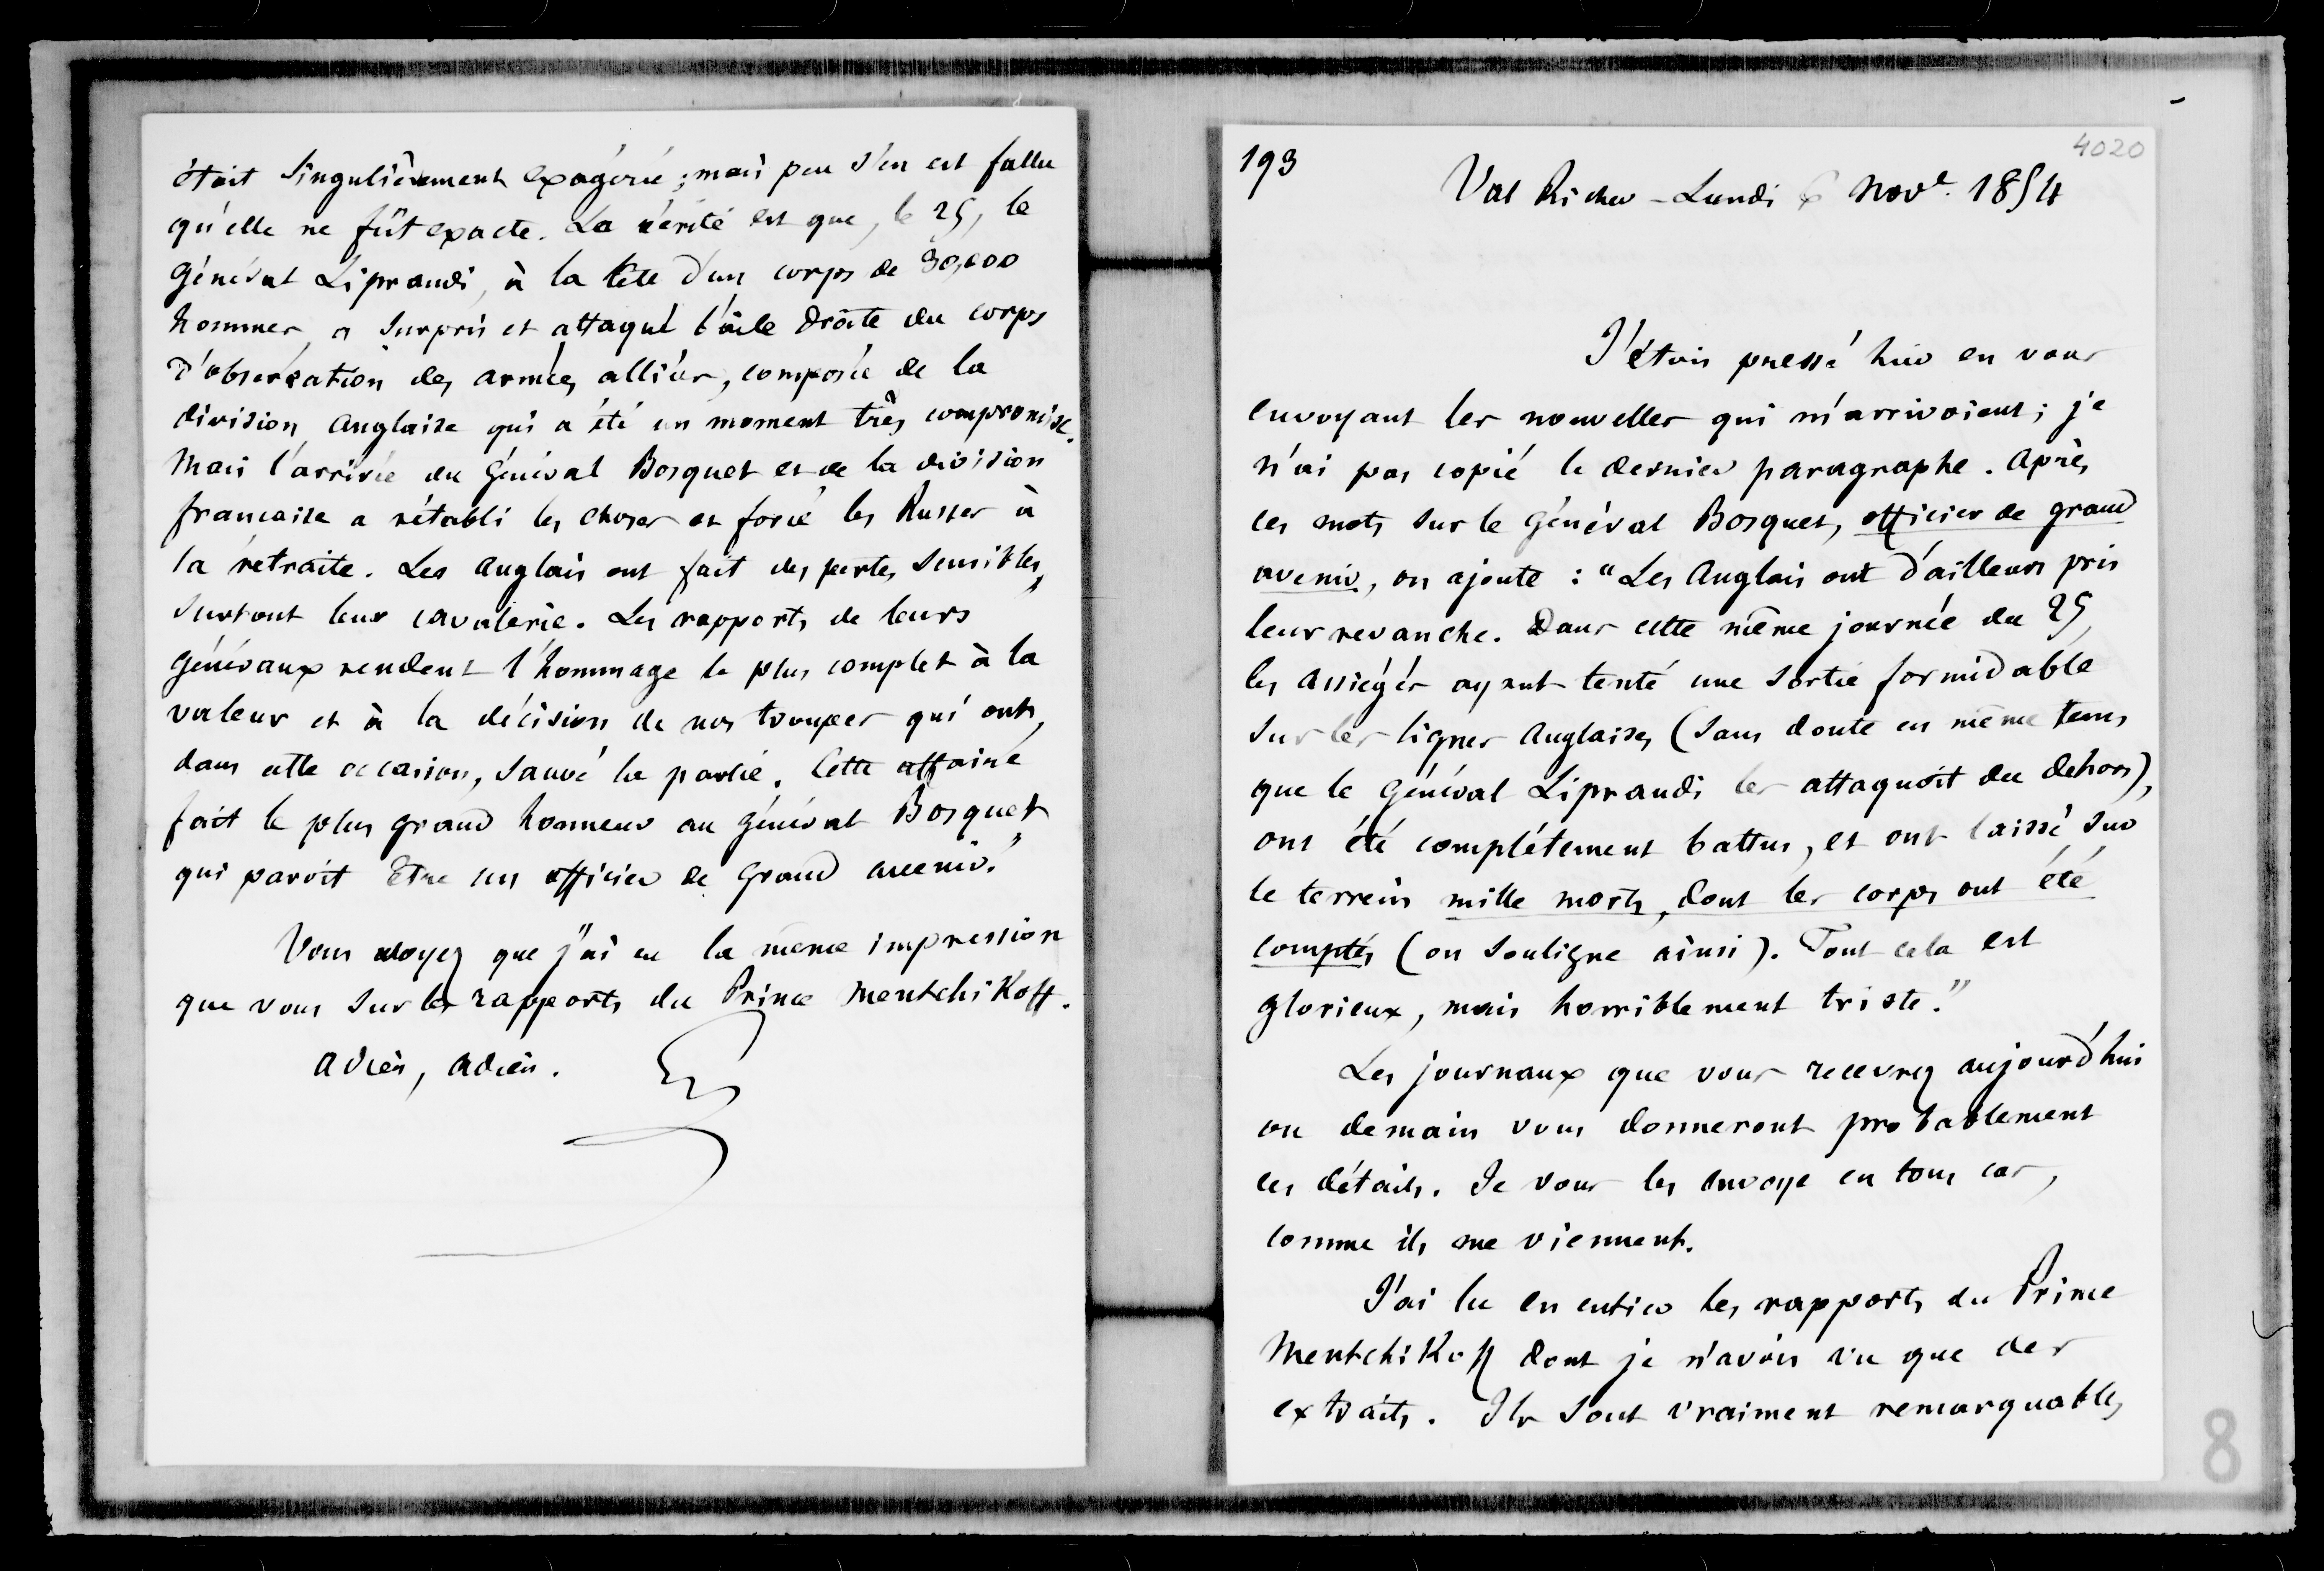 étoit singulièrement exagérée ; mais peu s'en est fallu
qu'elle ne fût exacte. La vérité est que, le 25, le
Général Liprandi, à la tête d'un corps de 30,000
hommes, a surpris et attaqué l'aile droite du corps
d'observation des armées alliées, composée de la
division Anglaise qui a été un moment très compromise.
Mais l'arrivée du Général Bosquet et de la division
française a rétabli les choses et forcé les Russes à
la retraite. Les Anglais ont fait des pertes sensibles,
surtout leur cavalerie. Les rapports de leurs
Généraux rendent l'hommage le plus complet à la
valeur et à la décision de nos troupes qui ont,
dans cette occasion, sauvé la partie. Cette affaire
fait le plus grand honneur au Général Bosquet
qui paroît être un officier de grand avenir."
Vous voyez que j'ai eu la même impression
que vous sur les rapports du Prince Mentchikoff.
Adieu, Adieu.
193
4020
Val Richer - Lundi 6 Nov.e 1854
J'étois pressé hier en vous
envoyant les nouvelles qui m'arrivoient ; je
n'ai pas copié le dernier paragraphe. Après
ces mots sur le Général Bosquet, officier de grand
avenir, on ajoute : "Les Anglais ont d'ailleurs pris
leur revanche. Dans cette même journée du 25,
les assiégés ayant tenté une sortie formidable
sur les lignes Anglaises (sans doute en même tems
que le Général Liprandi les attaquoit du dehors),
ont été complétement battus, et ont laissé sur
le terrein mille morts, dont les corps ont été
comptés (on souligne ainsi). Tout cela est
glorieux, mais horriblement triste."
Les journaux que vous recevrez aujourd'hui
ou demain vous donneront probablement
ces détails. Je vous les envoye en tous cas,
comme ils me viennent.
J'ai lu en entier les rapports du Prince
Mentchikoff dont je n'avois vu que des
extraits. Ils sont vraiment remarquables
8